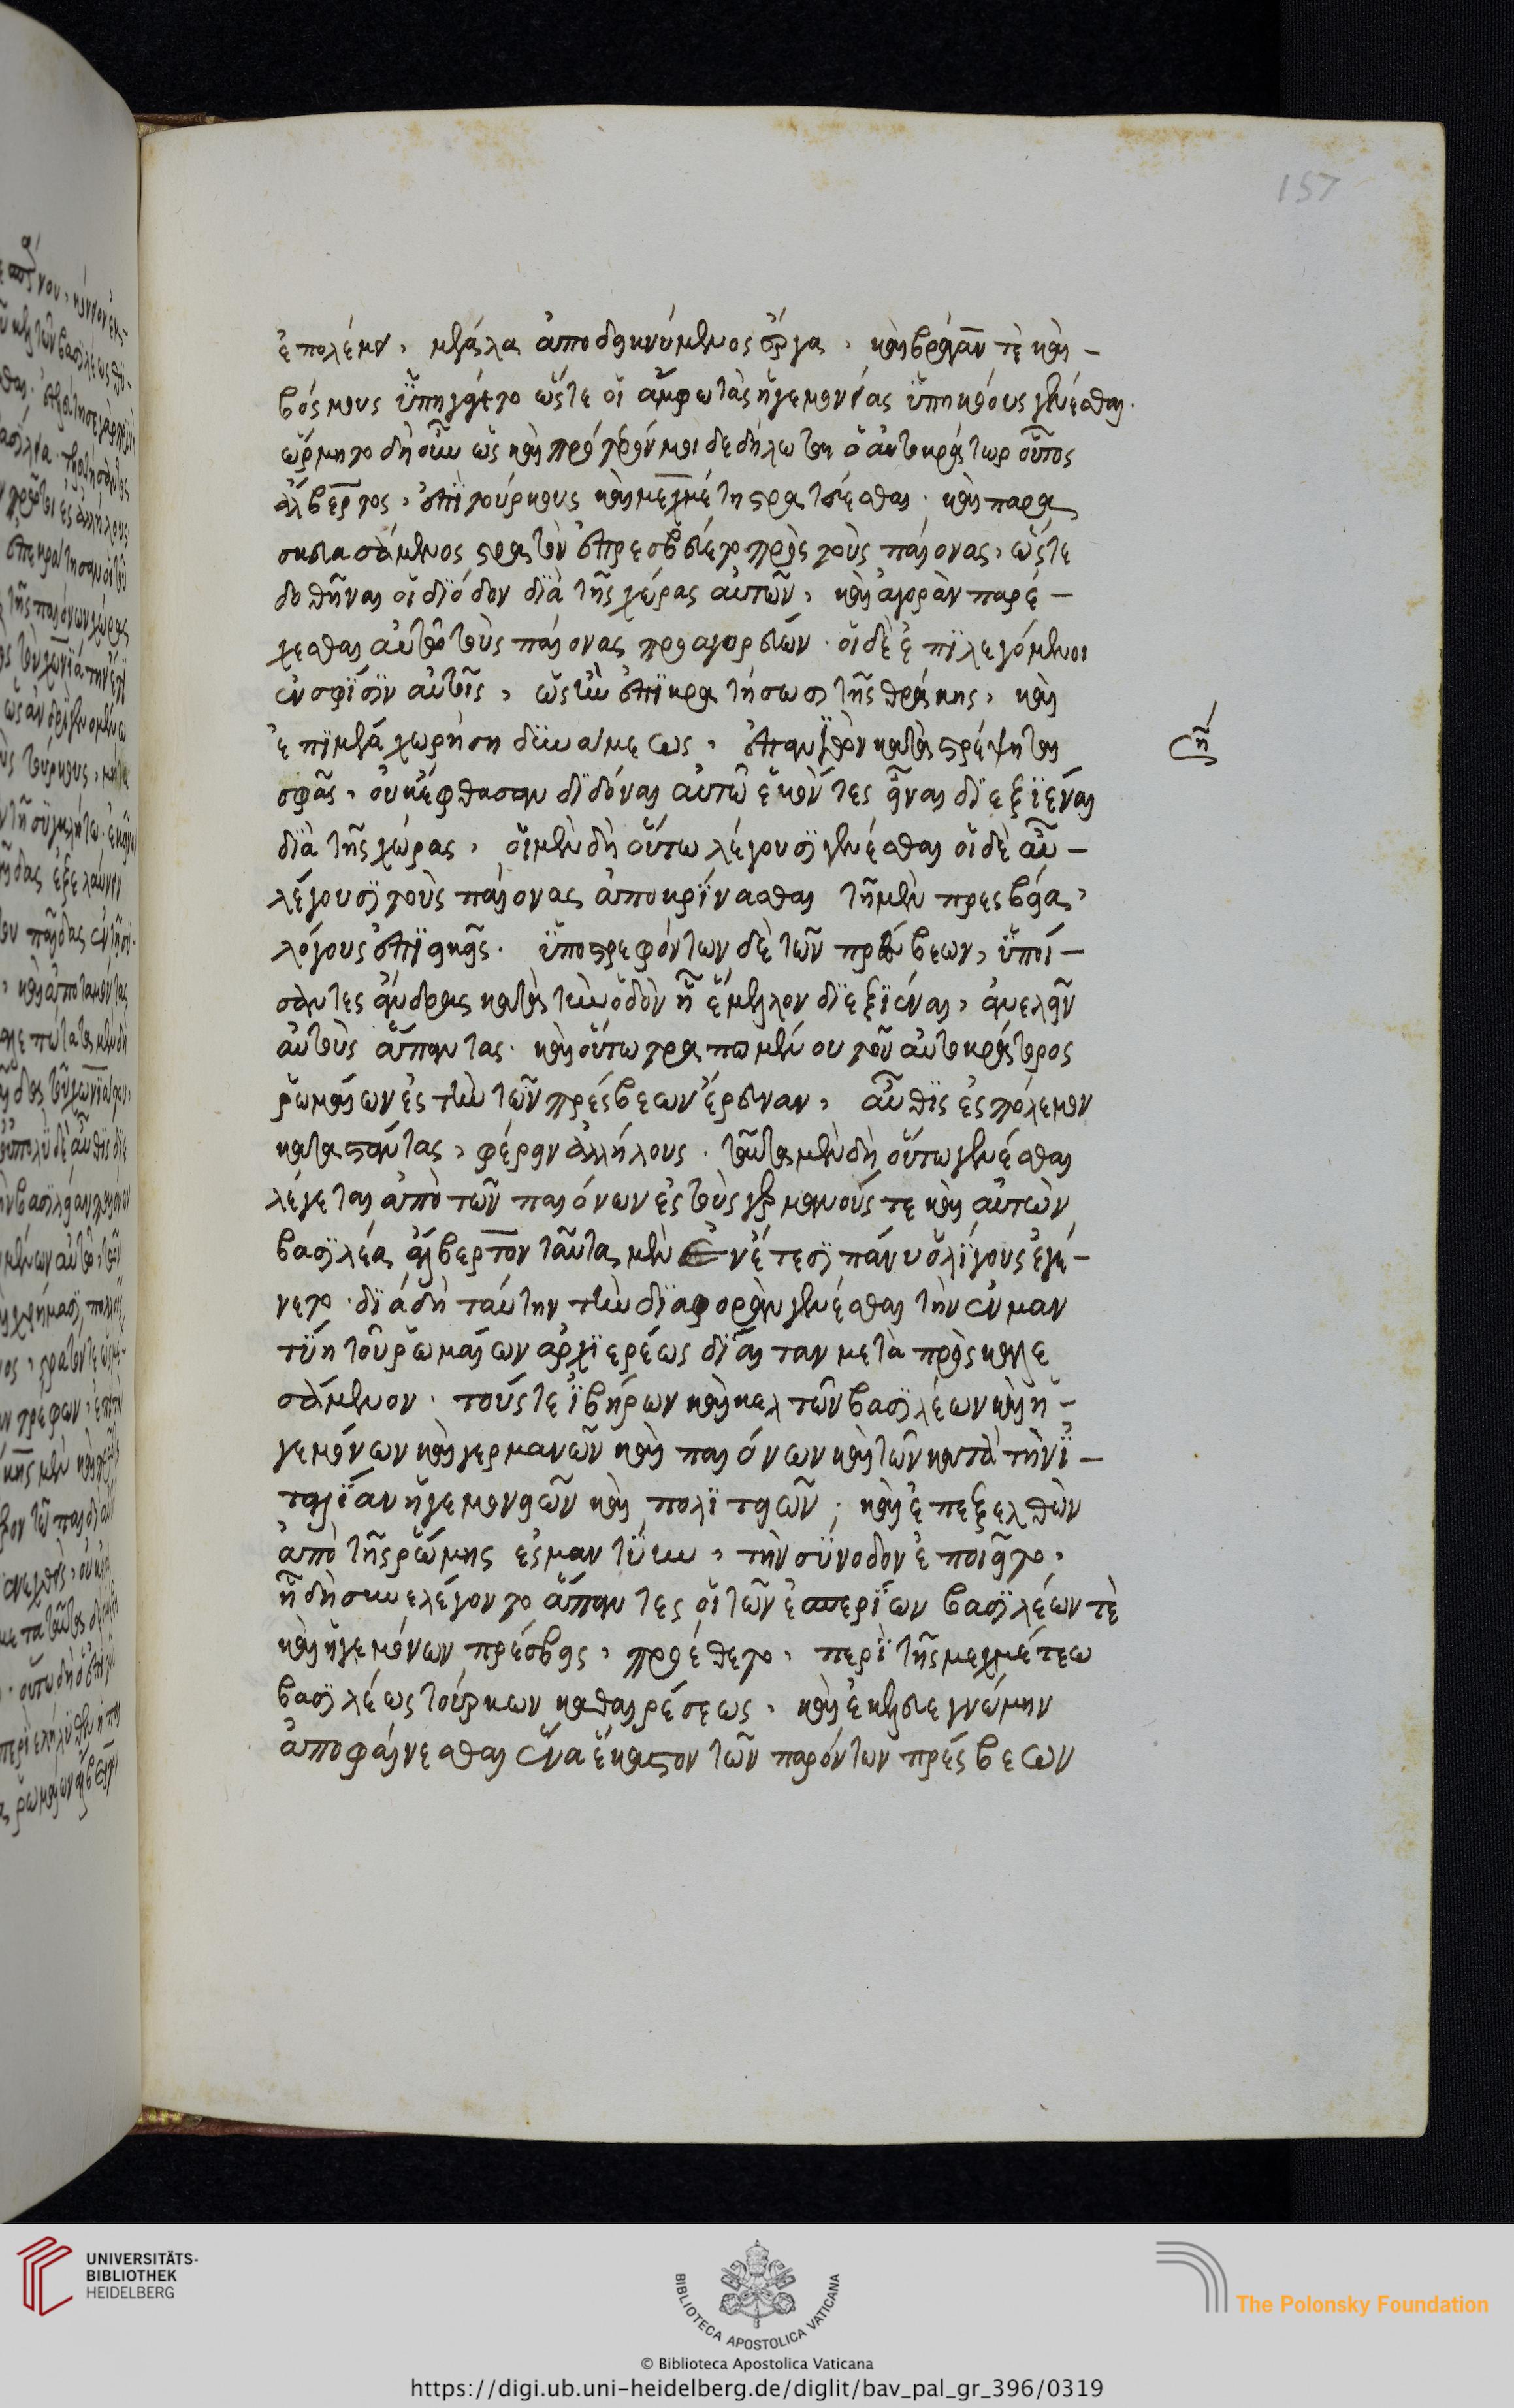 157
ἐπολέμει, μεγάλα ἀποδεικνύμενος ἔργα, καὶ βρίγαν τὲ καὶ –
βόσμους ὑπηγάγετο ὥστε οἱ ἄμφω τὰς ἡγεμονίας ὑπηκόους γενέσθαι.
ὥρμητο δὴ οὖν ὡς καὶ πρότερόν μοι δεδήλωται ὁ αὐτοκράτωρ οὗτος
ἀλβέρτος, ἐπὶ τούρκους καὶ μεχμέτη στρατεύεσθαι. καὶ παρα
σκευασάμενος στρατὸν ἐπρεσβεύετο πρὸς τοὺς παίονας, ὥστε
δοθῆναι οἱ δίοδον διὰ τῆς χώρας αὐτῶν, καὶ ἀγορὰν παρέ –
χεσθαι αὐτῶ τοὺς παίονας προαγορεύων. οἱ δὲ ἐπιλεγόμενοι
ἐν σφίσιν αὐτοῖς, ὡς ἢν ἐπικρατήσωσι τῆς θράκης, καὶ
ἐπιμέγα χωρήση δυνάμεως, ἐπανιὼν καταστρέψηται
σφᾶς, οὐκ ἔφθασαν διδόναι αὐτῶ ἑκόντες εἶναι διεξιέναι
διὰ τῆς χώρας, οἱ μὲν δὴ οὕτω λέγουσι γενέσθαι οἱ δὲ αὖ –
λέγουσι τοὺς παίονας ἀποκρίνασθαι τῆ μὲν πρεσβεία,
λόγους ἐπιεικεῖς. ὑποστρεφόντων δὲ τῶν πρέσβεων, ὑποί –
σαντες ἄνδρας κατὰ τὴν ὁδὸν ἧ ἔμελλον διεξιέναι, ἀνελεῖν
αὐτοὺς ἅπαντας. καὶ οὕτω τραπομένου τοῦ αὐτοκράτορος
ῥωμαίων ἐς τὴν τῶν πρέσβεων ἔρευναν, αὖθις ἐς πόλεμον
καταστάντας, φέρειν ἀλλήλους. ταῦτα μὲν δὴ οὕτω γενέσθαι
λέγεται ἀπὸ τῶν παιόνων ἐς τοὺς γερμανούς τε καὶ αὐτὼν
βασιλέα ἀλβερτον ταῦτα μὲν ἐν ἔτεσι πάνυ ὀλίγους ἐγέ –
νετο. διὰ δὴ ταύτην τὴν διαφορὰν γενέσθαι τὴν ἐν μαν
τύη τοῦ ῥωμαίων ἀρχιερέως δίαιταν μετὰ προσκαλε
σάμενον. τούς τε ἰβήρων καὶ κελτῶν βασιλέων καὶ ἡ –
γεμόνων καὶ γερμανῶν καὶ παιόνων καὶ τῶν κατὰ τὴν ἰ –
ταλίαν ἡγεμονειῶν καὶ πολιτειῶν. καὶ ἐπεξελθὼν
ἀπὸ τῆς ῥώμης ἐς μαντύην, τὴν σύνοδον ἐποιεῖτο,
ἧ δὴ συνελέγοντο ἅπαντες οἱ τῶν ἑσπερίων βασιλέων τὲ
καὶ ἡγεμόνων πρέσβεις, προέθετο, περὶ τῆς μεχμέτεω
βασιλέως τούρκων καθαιρέσεως, καὶ ἐκέλευε γνώμην
ἀποφαίνεσθαι ἕνα ἕκαστον τῶν παρόντων πρέσβεων
UNIVERSITÄTS-
BIBLIOTHEK
HEIDELBERG
BIBLIOTECA APOSTOLICA VATICANA
The Polonsky Foundation
© Biblioteca Apostolica Vaticana
https://digi.ub.uni-heidelberg.de/diglit/bav_pal_gr_396/0319